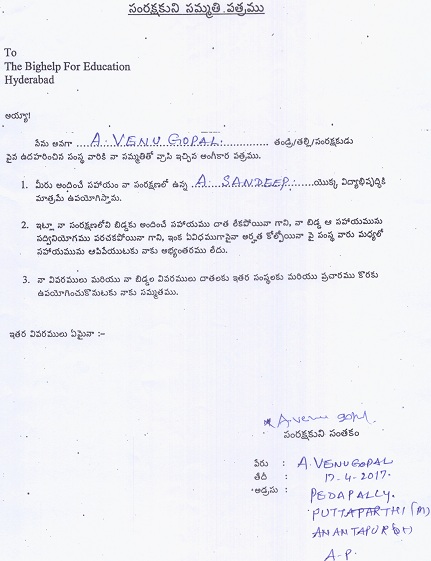 సంరక్షకుని సమ్మతి పత్రము
To
The Bighelp For Education
Hyderabad
అయ్యా!
నేను అనగా ......A. VENU GOPAL............. తండ్రి/తల్లి/సంరక్షకుడు
పైన ఉదహరించిన సంస్థ వారికి నా సమ్మతితో వ్రాసి ఇచ్చిన అంగీకార పత్రము.
1. మీరు అందించే సహాయం నా సంరక్షణలో ఉన్న A. SANDEEP.......యొక్క విద్యాభివృద్ధికి
మాత్రమే ఉపయోగిస్తాను.
2. ఇట్లా నా సంరక్షణలోని బిడ్డకు అందించే సహాయము దాత లేకపోయినా గాని, నా బిడ్డ ఆ సహాయమును
సద్వినియోగము పరచకపోయినా గాని, ఇంక ఏవిధముగానైనా అర్హత కోల్పోయినా పై సంస్థ వారు మధ్యలో
సహాయమును ఆపివేయుటకు నాకు అభ్యంతరము లేదు.
3. నా వివరములు మరియు నా బిడ్డల వివరములు దాతలకు ఇతర సంస్థలకు మరియు ప్రచారము కొరకు
ఉపయోగించుకొనుటకు నాకు సమ్మతము.
ఇతర వివరములు ఏమైనా :-
A. venu gopal.
సంరక్షకుని సంతకం
పేరు : A. VENUGOPAL
తేదీ : 17-4-2017.
అడ్రసు : PEDAPALLY.
PUTTAPARTHI (M)
ANANTAPUR (DT)
A-P.